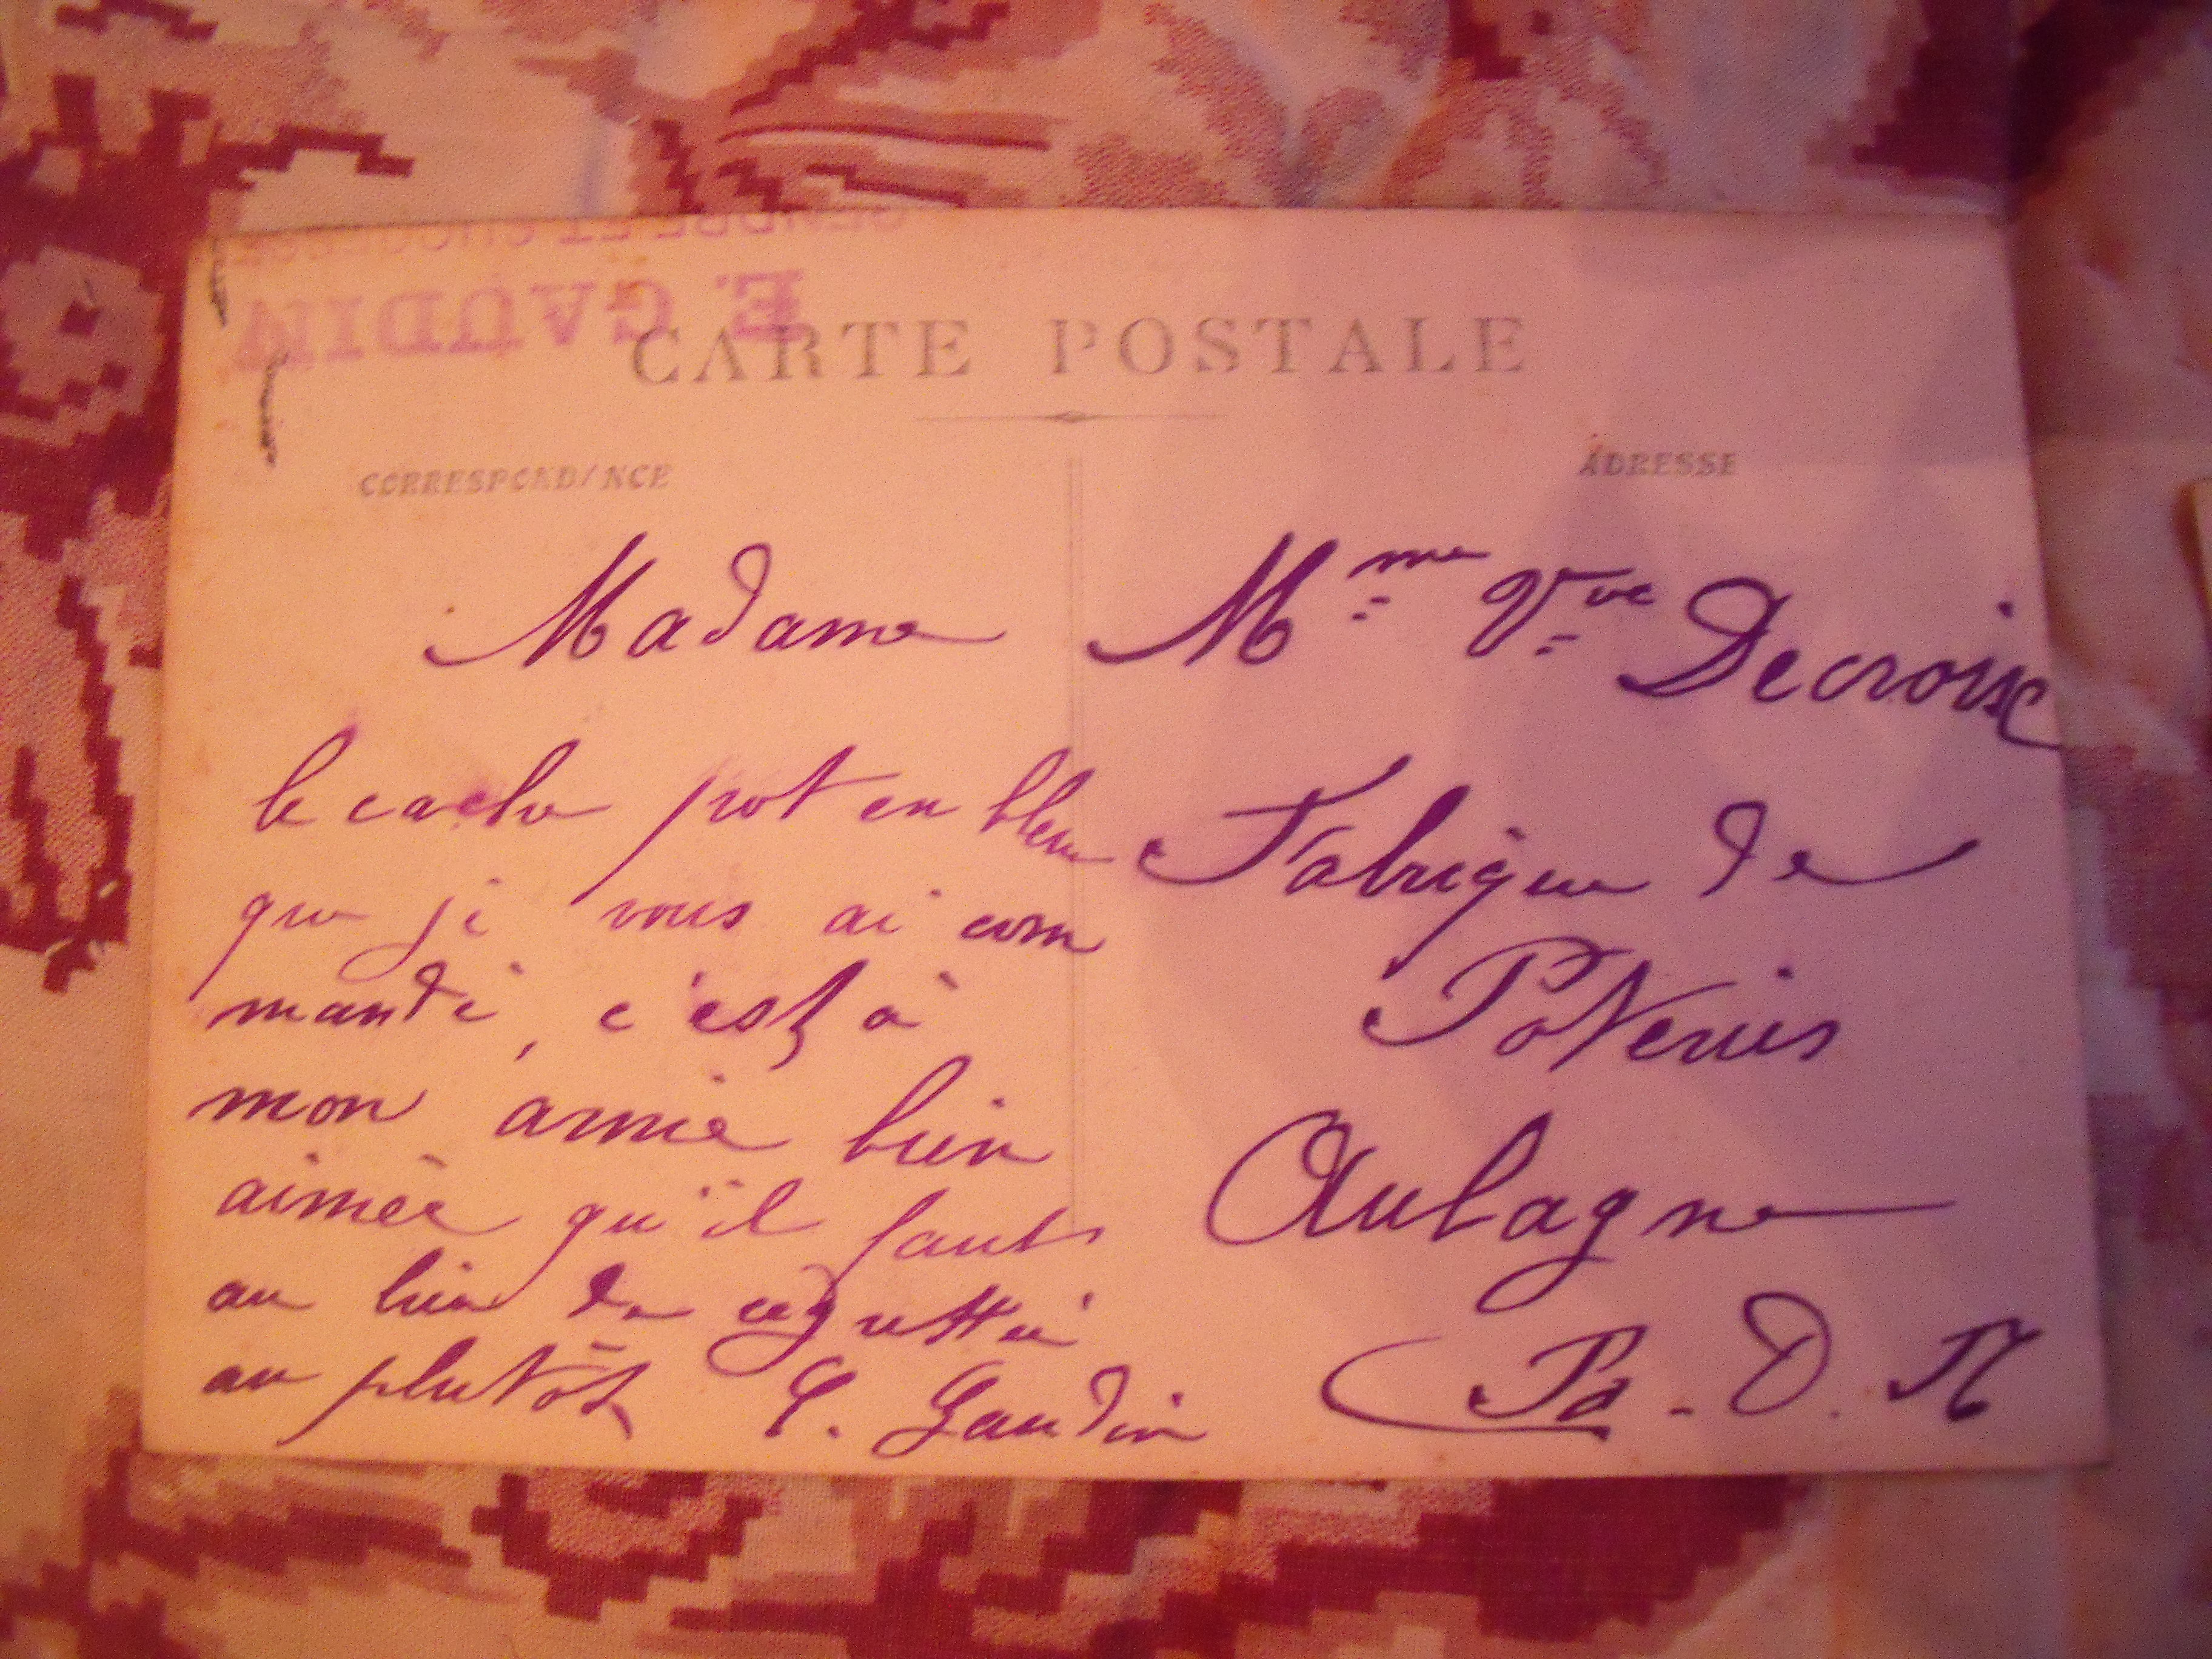 GENDRE ET SUCCESSEUR
E. GAUDIN
CARTE POSTALE
CORRESPONDANCE
ADRESSE
Madame
le cache pot en bleu
que je vous ai com
mandé, c'est à
mon amie bien
aimée qu'il faut
au lieu de
au plutôt E. Gaudin
Mme Vve Decroix
Fabrique de
Poteries
Aubagne
B. D. R